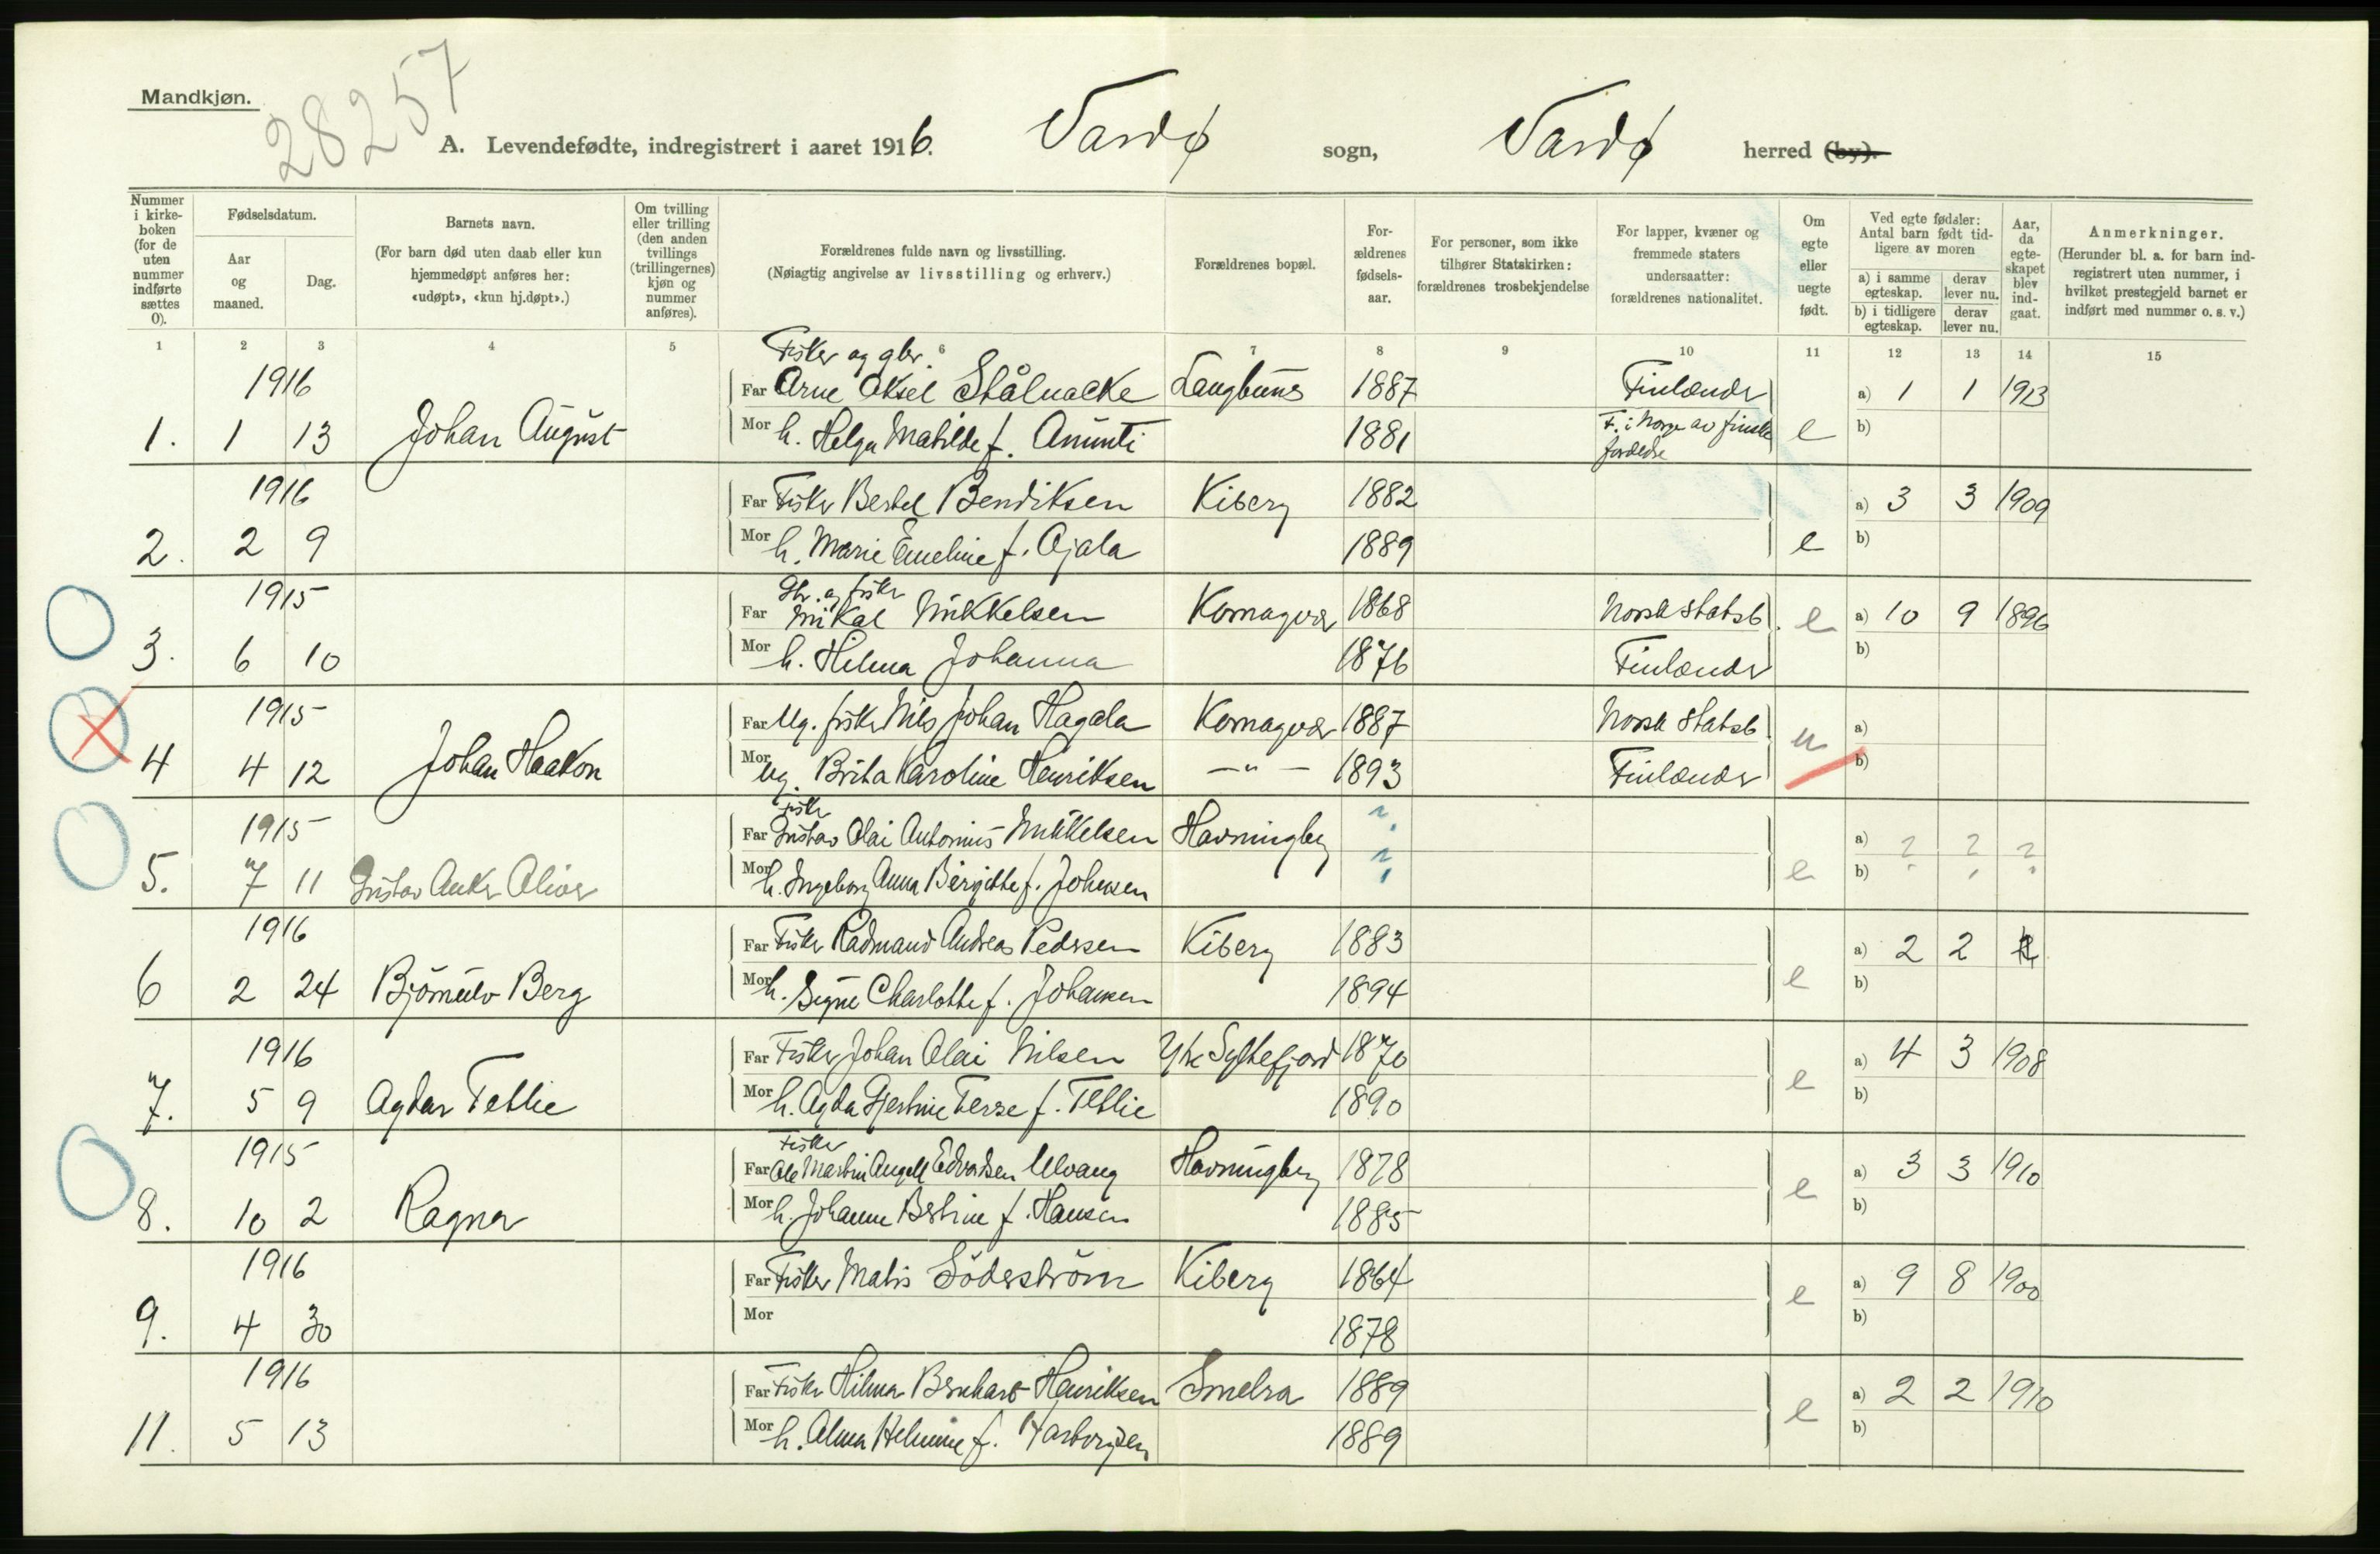 Mandkjøn.
28257
A. Levendefødte, indregistrert i aaret 1916. Vardø sogn, Vardø herred (by).
Nummer i kirke-boken (for de uten nummer indførte sættes 0).
Fødselsdatum.
Aar og maaned.
Dag.
Barnets navn.
(For barn død uten daab eller kun hjemmedøpt anføres her: «udøpt», «kun hj.døpt».)
Om tvilling eller trilling (den anden tvillings (trillingernes) kjøn og nummer anføres).
Forældrenes fulde navn og livsstilling.
(Nøiagtig angivelse av livsstilling og erhverv.)
Forældrenes bopæl.
For-ældrenes fødsels-aar.
For personer, som ikke tilhører Statskirken: forældrenes trosbekjendelse
For lapper, kvæner og fremmede staters undersaatter: forældrenes nationalitet.
Om egte eller uegte født.
Ved egte fødsler: Antal barn født tid-ligere av moren
a) i samme egteskap. derav lever nu.
b) i tidligere egteskap. derav lever nu.
Aar, da egte-skapet blev ind-gaat.
Anmerkninger.
(Herunder bl. a. for barn ind-registrert uten nummer, i hvilket prestegjeld barnet er indført med nummer o. s. v.)
1 2 3 4 5 6 7 8 9 10 11 12 13 14 15
Fisker og gbr.
1916 Far Arne Aksel Stålnacke Langbunes 1887 Finlænder a) 1 1 1913
1. 1 13 Johan August Mor h. Helga Matilde f. Anunti 1881 F. i Norge av finske forældre e b)
1916 Far Fisker Bertel Bendiksen Kiberg 1882 a) 3 3 1909
2. 2 9 Mor h. Marie Emeline f. Ajala 1889 e b)
Gbr. og fisker
1915 Far Mikal Mikkelsen Komagvær 1868 Norsk statsb. e a) 10 9 1896
3. 6 10 Mor h. Hilma Johanna 1876 Finlænder b)
1915 Far Ug. fisker Nils Johan Hagala Komagvær 1887 Norsk statsb. u a)
4 4 12 Johan Haakon Mor Ug. Brita Karoline Henriksen —"— 1893 Finlænder b)
Fisker
1915 Far Gustav Olai Antonius Mikkelsen Havningberg ? a) ? ? ?
5. 7 11 Gustav Anker Oliver Mor h. Ingeborg Anna Bergitte f. Johnsen ? e b)
1916 Far Fisker Radmand Andreas Pedersen Kiberg 1883 a) 2 2
6 2 24 Bjørnulv Berg Mor h. Signe Charlotte f. Johansen 1894 e b)
1916 Far Fisker Johan Olai Nilsen Ytre Syltefjord 1870 a) 4 3 1908
7. 5 9 Agdar Tetlie Mor h. Agda Gjertine Terese f. Tetlie 1890 e b)
Fisker
1915 Far Ole Martin Angell Edvardsen Ulvang Havningberg 1878 a) 3 3 1910
8. 10 2 Ragnar Mor h. Johanne Bertine f. Hansen 1885 e b)
1916 Far Fisker Matis Söderström Kiberg 1864 a) 9 8 1900
9. 4 30 Mor 1878 e b)
1916 Far Fisker Hilmar Bernhard Henriksen Smelror 1889 a) 2 2 1910
11. 5 13 Mor h. Alma Helmine f. 1889 e b)